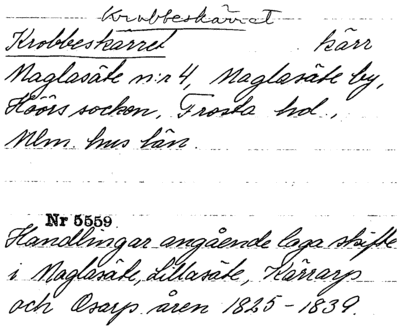 Krobbeskärret
Krobbeskärret kärr
Maglasäte n:r 4, Maglasäte by,
Höörs socken, Frosta hd.,
Mlm. hus län.
Nr 5559
Handlingar angående laga skifte
i Maglasäte, Lillasäte, Kärrarp
och Osarp åren 1825-1839.